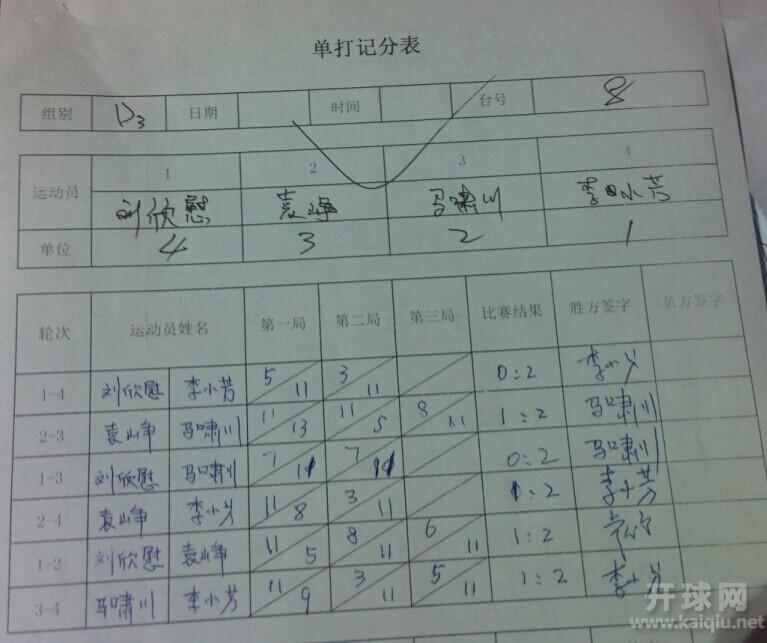 单打记分表
组别 D3 日期 时间 台号 8
运动员 1 2 3 4
刘欣慰 袁峥 马啸川 李小芳
单位 4 3 2 1
轮次 运动员姓名 第一局 第二局 第三局 比赛结果 胜方签字 负方签字
1-4 刘欣慰 李小芳 5/11 3/11 0:2 李小芳
2-3 袁峥 马啸川 11/13 11/5 8/11 1:2 马啸川
1-3 刘欣慰 马啸川 7/11 7/11 0:2 马啸川
2-4 袁峥 李小芳 11/8 3/11 :2 李小芳
1-2 刘欣慰 袁峥 11/5 8/11 6/11 1:2
3-4 马啸川 李小芳 11/9 3/11 5/11 1:2 李小芳
开球网
www.kaiqiu.net